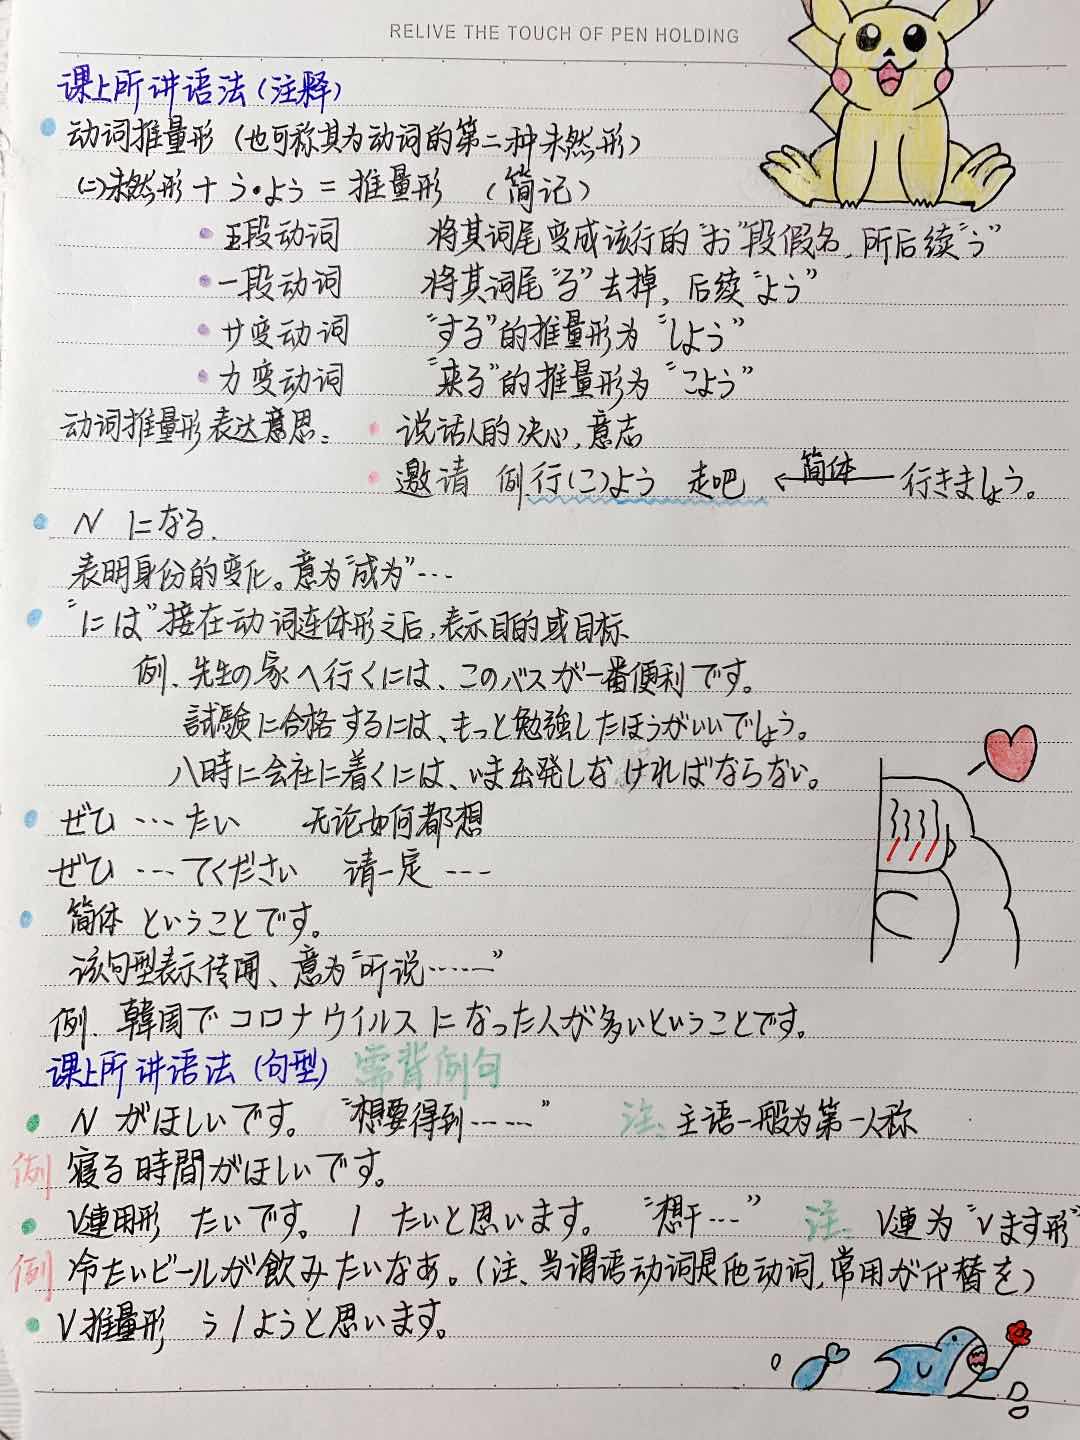 RELIVE THE TOUCH OF PEN HOLDING
课上所讲语法（注释）
动词推量形（也可称其为动词的第二种未然形）
(二)未然形＋う・よう＝推量形 （简记）
五段动词 将其词尾变成该行的“お”段假名，所后续“う”
一段动词 将其词尾“る”去掉，后续“よう”
サ变动词 “する”的推量形为“しよう”
カ变动词 “来る”的推量形为“こよう”
动词推量形表达意思： 说话人的决心，意志
邀请 例行(こ)よう 走吧 ←简体 行きましょう。
N になる.
表明身份的变化。意为“成为”…
“には”接在动词连体形之后，表示目的或目标
例、先生の家へ行くには、このバスが一番便利です。
試験に合格するには、もっと勉強したほうがいいでしょう。
八時に会社に着くには、いま出発しなければならない。
ぜひ …たい 无论如何都想
ぜひ …てください 请一定 …
简体 ということです。
该句型表示传闻、意为“听说……”
例、韓国でコロナウイルスになった人が多いということです。
课上所讲语法（句型） 需背例句
N がほしいです。 “想要得到……” 注、主语一般为第一人称
例 寝る時間がほしいです。
V連用形 たいです。/ たいと思います。 “想干…” 注、V連为“Vます形”
例 冷たいビールが飲みたいなあ。（注、当谓语动词是他动词，常用が代替を）
V推量形 う/ようと思います。